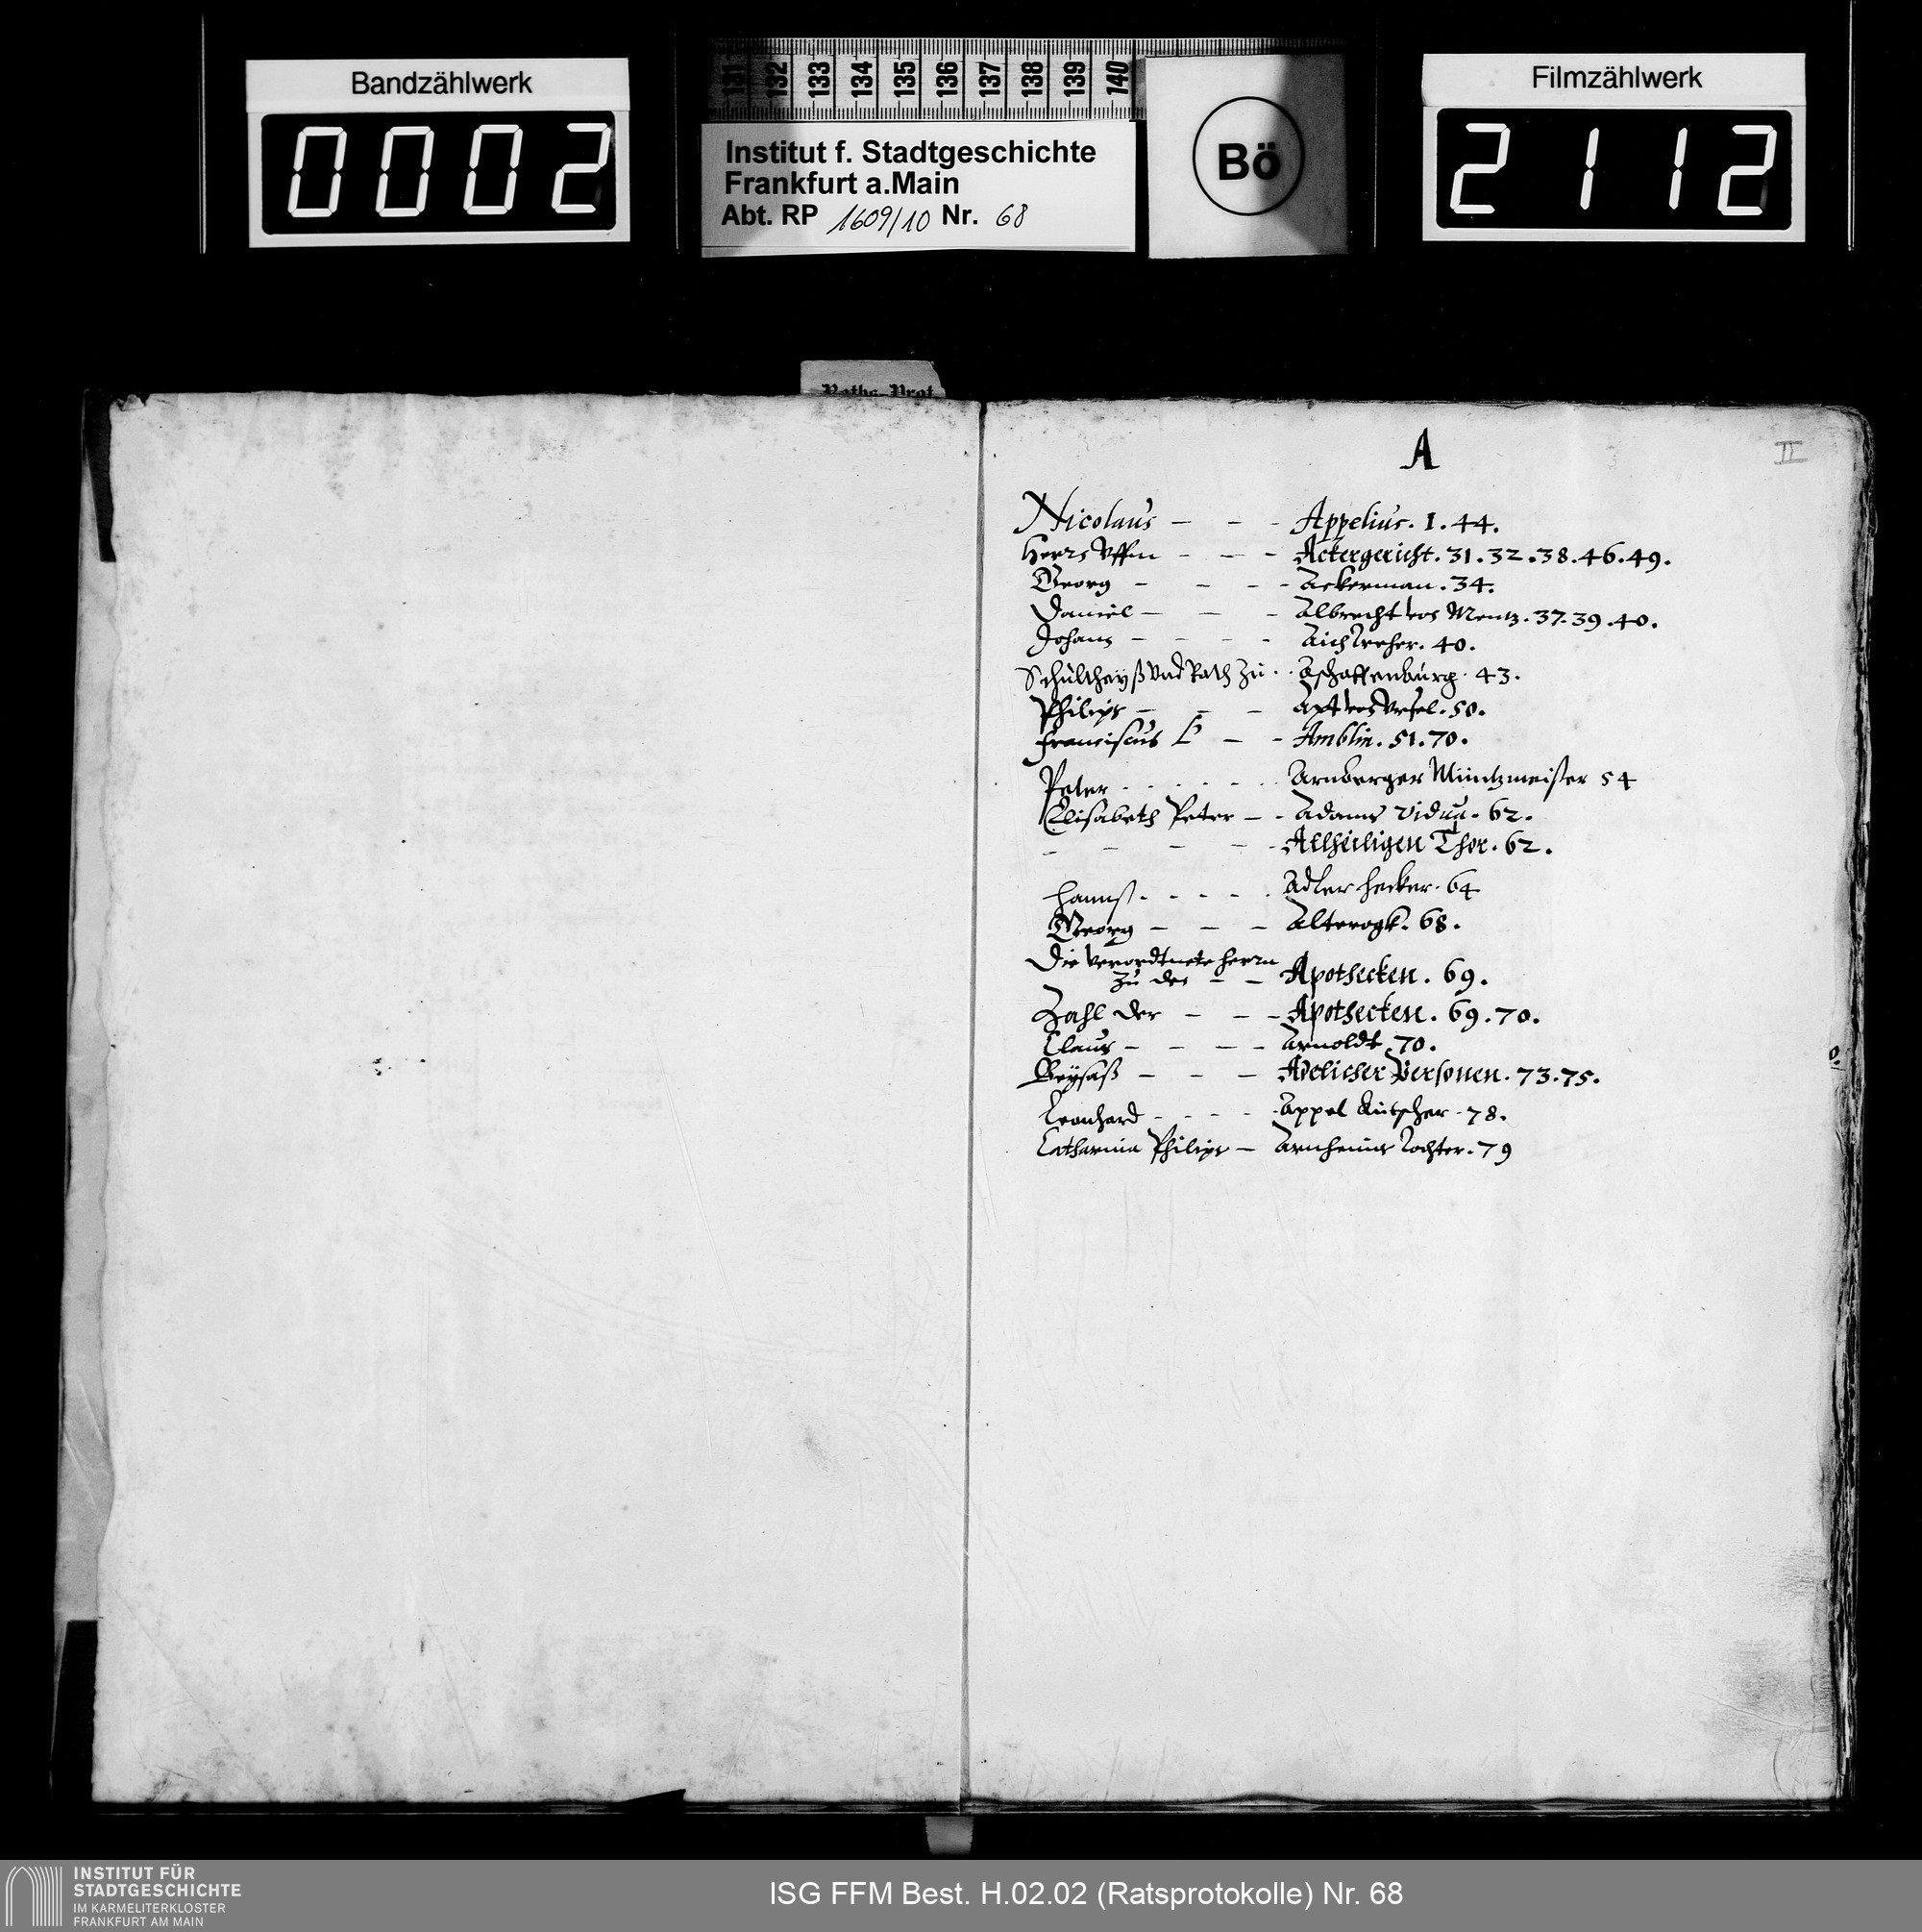 Bandzählwerk
0002
131 132 133 134 135 136 137 138 139 140
Institut f. Stadtgeschichte
Frankfurt a.Main
Abt. RP 1609/10 Nr. 68
Bö
Filmzählwerk
2112
Raths-Prot
A
II
Nicolaus - - - Appelius. 1. 44.
- - - Ackergericht. 31. 32. 38. 46. 49.
Georg - - - Ackerman. 34.
Daniel - - - Albrecht von Mentz. 37. 39. 40.
Johann - - - 40.
Schultheyß vnd Rath zu Aschaffenburg. 43.
Philips - - - Apt von Vrsel. 50.
Franciscus - - Amblin. 51. 70.
Peter . . . . Arnberger Müntzmeister 54
Elisabeth Peter - - Adams vidua. 62.
- - - - - Allheiligen Thor. 62.
Hannß . . . . Adler Hecker. 64
Georg - - - 68.
Die verordtnete Herrn
zu den - - Apothecken. 69.
Zahl der - - - Apothecken. 69. 70.
Claus - - - - Arnoldt. 70.
Beysaß - - - Adelicher Personen. 73. 75.
Leonhard - - - Appel Kutscher. 78.
Catharina Philips - Arnheims Tochter. 79
INSTITUT FÜR
STADTGESCHICHTE
IM KARMELITERKLOSTER
FRANKFURT AM MAIN
ISG FFM Best. H.02.02 (Ratsprotokolle) Nr. 68